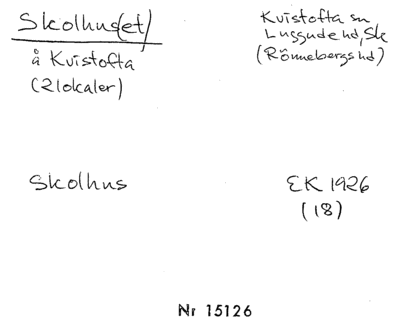 Skolhus(et)
å Kvistofta
(2 lokaler)
Kvistofta sn
Luggude hd, Sk
(Rönnebergs hd)
Skolhus
EK 1926
(18)
Nr 15126